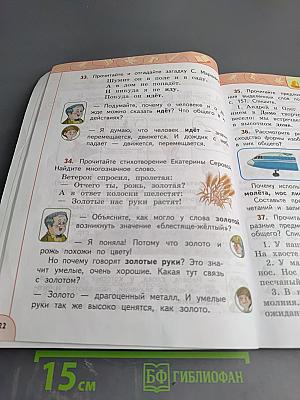 33. Прочитайте и отгадайте загадку С.
Шумит он в поле и в саду,
А в дом не попадёт.
И никуда я не иду,
Покуда он идёт.
— Подумайте, почему о человеке и о
же можно сказать идёт? Что общего в
действиях?
— Я думаю, что человек идёт —
перемещается, движется. И дождик
падает — движется, перемещается.
34. Прочитайте стихотворение Екатерины
Найдите многозначное слово.
Ветерок спросил, пролетая:
— Отчего ты, рожь, золотая?
А в ответ колоски шелестят:
Золотые нас руки растят!
— Объясните, как могло у слова золотой
возникнуть значение «блестяще-жёлтый»?
— Я поняла! Потому что золото и
рожь похожи по цвету!
Но почему говорят золотые руки? Это зна-
чит умелые, очень хорошие. Какая тут связь
с золотом?
— Золото — драгоценный металл. И умелые
руки так же высоко ценятся, как золото.
22
35. Прочитайте
выделенных слов
с. 157. Спишите.
1. Андрей и Олег
36. Рассмотрите
общего?
Почему
молёта, нос
Составьте
37. Прочитайте
разные
общего? Спиши
1. У
На хвосте
2. У
песчаный
3. В
молния.
ожидания.
15 см
БФ БИБЛИОФАН